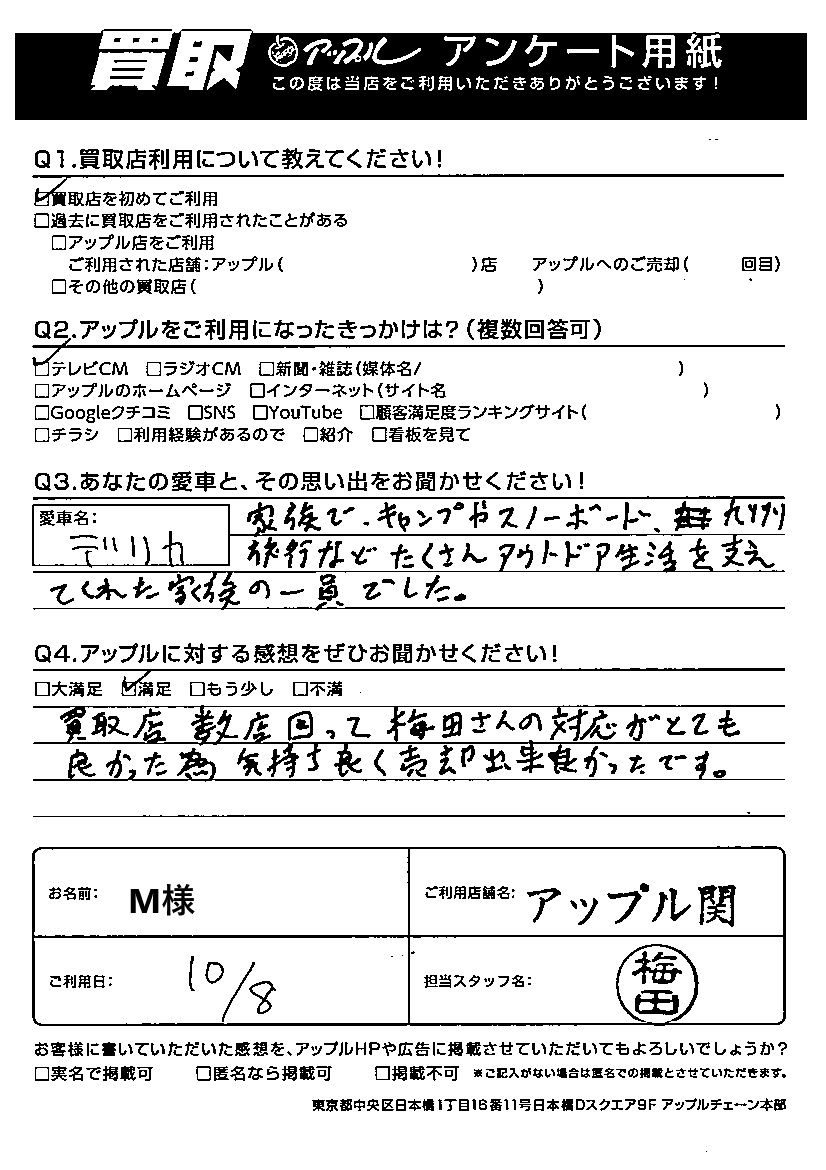 買取 アップル アンケート用紙
この度は当店をご利用いただきありがとうございます!
Q1.買取店利用について教えてください!
☑買取店を初めてご利用
□過去に買取店をご利用されたことがある
□アップル店をご利用
ご利用された店舗:アップル( )店 アップルへのご売却( 回目)
□その他の買取店( )
Q2.アップルをご利用になったきっかけは?(複数回答可)
☑テレビCM □ラジオCM □新聞・雑誌(媒体名/ )
□アップルのホームページ □インターネット(サイト名 )
□Googleクチコミ □SNS □YouTube □顧客満足度ランキングサイト( )
□チラシ □利用経験があるので □紹介 □看板を見て
Q3.あなたの愛車と、その思い出をお聞かせください!
愛車名:
デリカ
家族で、キャンプやスノーボード、九州
旅行などたくさんアウトドア生活を支え
てくれた家族の一員でした。
Q4.アップルに対する感想をぜひお聞かせください!
□大満足 ☑満足 □もう少し □不満
買取店 数店回って梅田さんの対応がとても
良かった為 気持ち良く売却出来良かったです。
お名前: M様
ご利用店舗名: アップル関
ご利用日: 10/8
担当スタッフ名: 梅田
お客様に書いていただいた感想を、アップルHPや広告に掲載させていただいてもよろしいでしょうか?
□実名で掲載可 □匿名なら掲載可 □掲載不可 ※ご記入がない場合は匿名での掲載とさせていただきます。
東京都中央区日本橋1丁目16番11号日本橋Dスクエア9F アップルチェーン本部